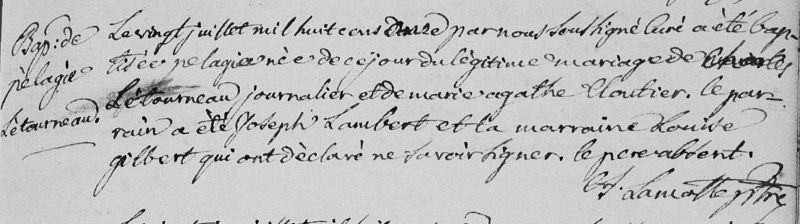 Bap: de
pelagie
Letourneau.
Le vingt juillet mil huit cens onze par nous soussigné curé a été bap-
tisée pelagie née de ce jour du légitime mariage de Charles
Létourneau journalier et de marie agathe Cloutier. le par-
rain a été Joseph Lambert et la marraine Louise
gilbert qui ont déclaré ne savoir signer. le pere absent.
Lamotte ptre